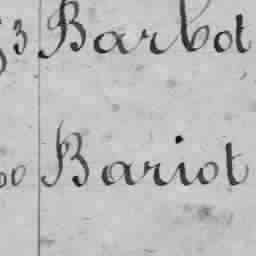 53 Barbot
60 Bariot